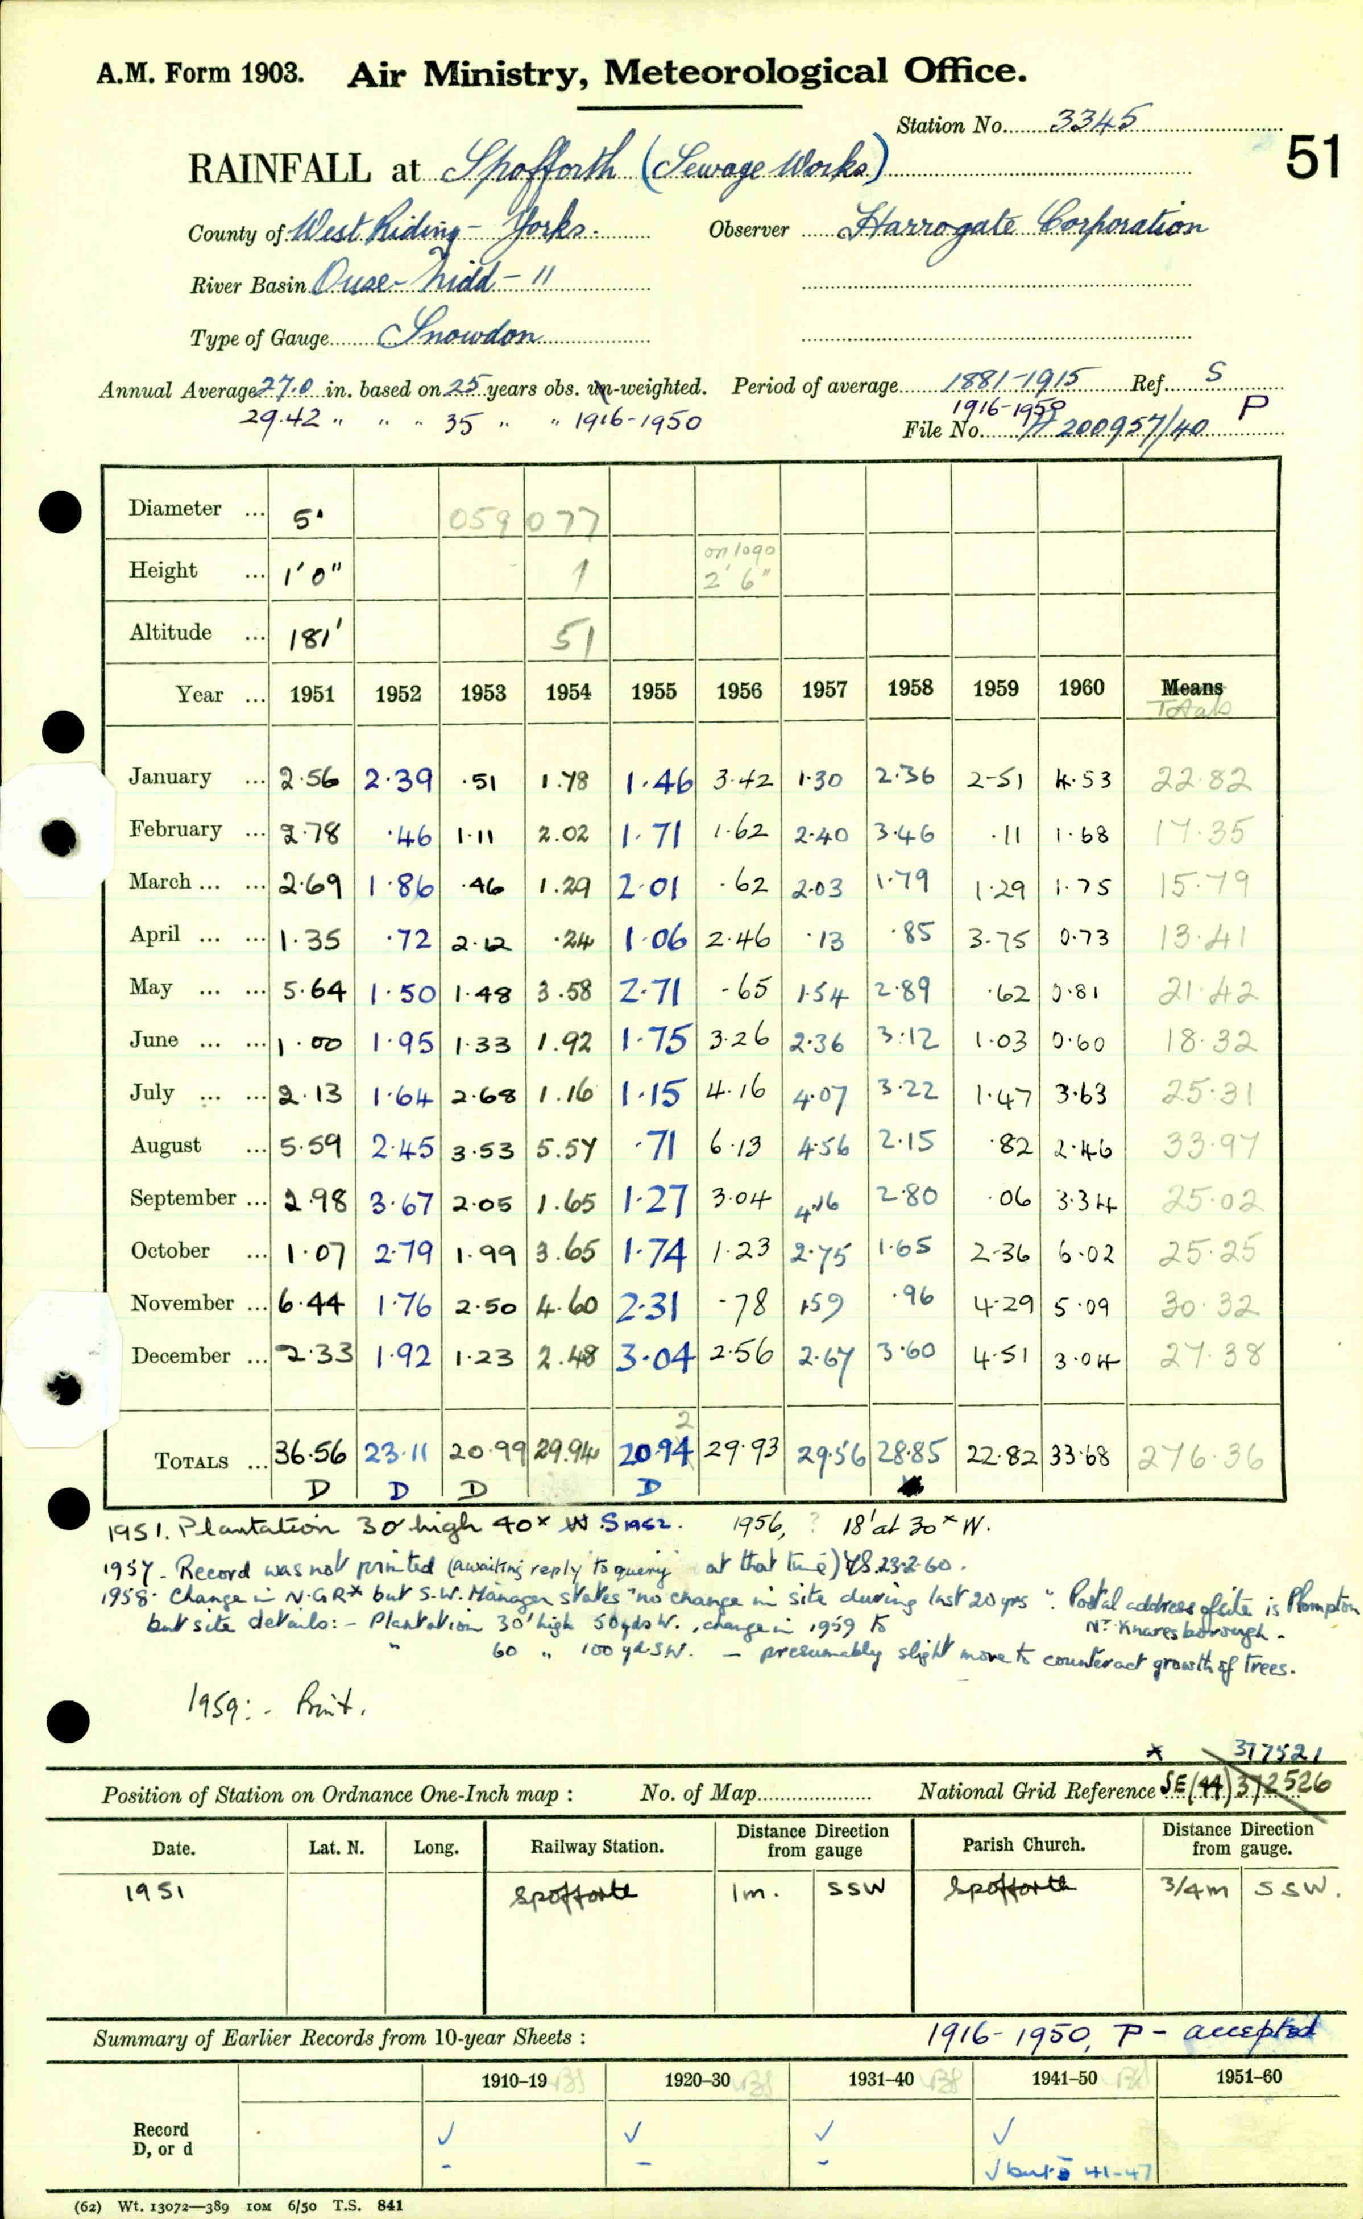 A.M. Form 1903. Air Ministry, Meteorological Office.
Station No. 3345
51
RAINFALL at Spofforth (Sewage Works)
County of West Riding - Yorks. Observer Harrogate Corporation
River Basin Ouse - Nidd - 11
Type of Gauge Snowdon
Annual Average 27.0 in. based on 25 years obs. un-weighted. Period of average 1881-1915 Ref. S
29.42 " " " 35 " " 1916-1950 1916-1950 P
File No. 200957/40
Diameter ... 5" 059 077
on logo
Height ... 1'0" 1 2'6"
Altitude ... 181' 51
Year ... 1951 1952 1953 1954 1955 1956 1957 1958 1959 1960 Means
Totals
January ... 2.56 2.39 .51 1.78 1.46 3.42 1.30 2.36 2.51 4.53 22.82
February ... 2.78 .46 1.11 2.02 1.71 1.62 2.40 3.46 .11 1.68 17.35
March ... ... 2.69 1.86 .46 1.29 2.01 .62 2.03 1.79 1.29 1.75 15.79
April ... ... 1.35 .72 2.12 .24 1.06 2.46 .13 .85 3.75 0.73 13.41
May ... ... 5.64 1.50 1.48 3.58 2.71 .65 1.54 2.89 .62 0.81 21.42
June ... ... 1.00 1.95 1.33 1.92 1.75 3.26 2.36 3.12 1.03 0.60 18.32
July ... ... 2.13 1.64 2.68 1.16 1.15 4.16 4.07 3.22 1.47 3.63 25.31
August ... 5.59 2.45 3.53 5.57 .71 6.13 4.56 2.15 .82 2.46 33.97
September ... 2.98 3.67 2.05 1.65 1.27 3.04 4.16 2.80 .06 3.34 25.02
October ... 1.07 2.79 1.99 3.65 1.74 1.23 2.75 1.65 2.36 6.02 25.25
November ... 6.44 1.76 2.50 4.60 2.31 .78 1.59 .96 4.29 5.09 30.32
December ... 2.33 1.92 1.23 2.48 3.04 2.56 2.67 3.60 4.51 3.04 27.38
2
TOTALS ... 36.56 23.11 20.99 29.94 20.94 29.93 29.56 28.85 22.82 33.68 276.36
D D D D
1951. Plantation 30' high 40x W. S 1952. 1956, ? 18' at 30x W.
1957 - Record was not printed (awaiting reply to query at that time) 23.2.60.
1958. Change in N.G.R* but S.W. Manager states "no change in site during last 20 yrs". Postal address of site is Plompton
but site details: - Plantation 30' high 50 yds W., change in 1959 to Nr Knaresborough.
" 60 " 100 yd SW. - presumably slight move to counteract growth of trees.
1959: - Print.
* 377521
Position of Station on Ordnance One-Inch map : No. of Map National Grid Reference SE (44) 372526
Date. Lat. N. Long. Railway Station. Distance from gauge Direction Parish Church. Distance from gauge. Direction
1951 Spofforth 1m. SSW Spofforth 3/4m SSW.
Summary of Earlier Records from 10-year Sheets : 1916-1950, P - accepted
1910-19 1920-30 1931-40 1941-50 1951-60
Record ✓ ✓ ✓ ✓
D, or d - - - ✓ but 41-47
(62) Wt. 13072—389 10M 6/50 T.S. 841